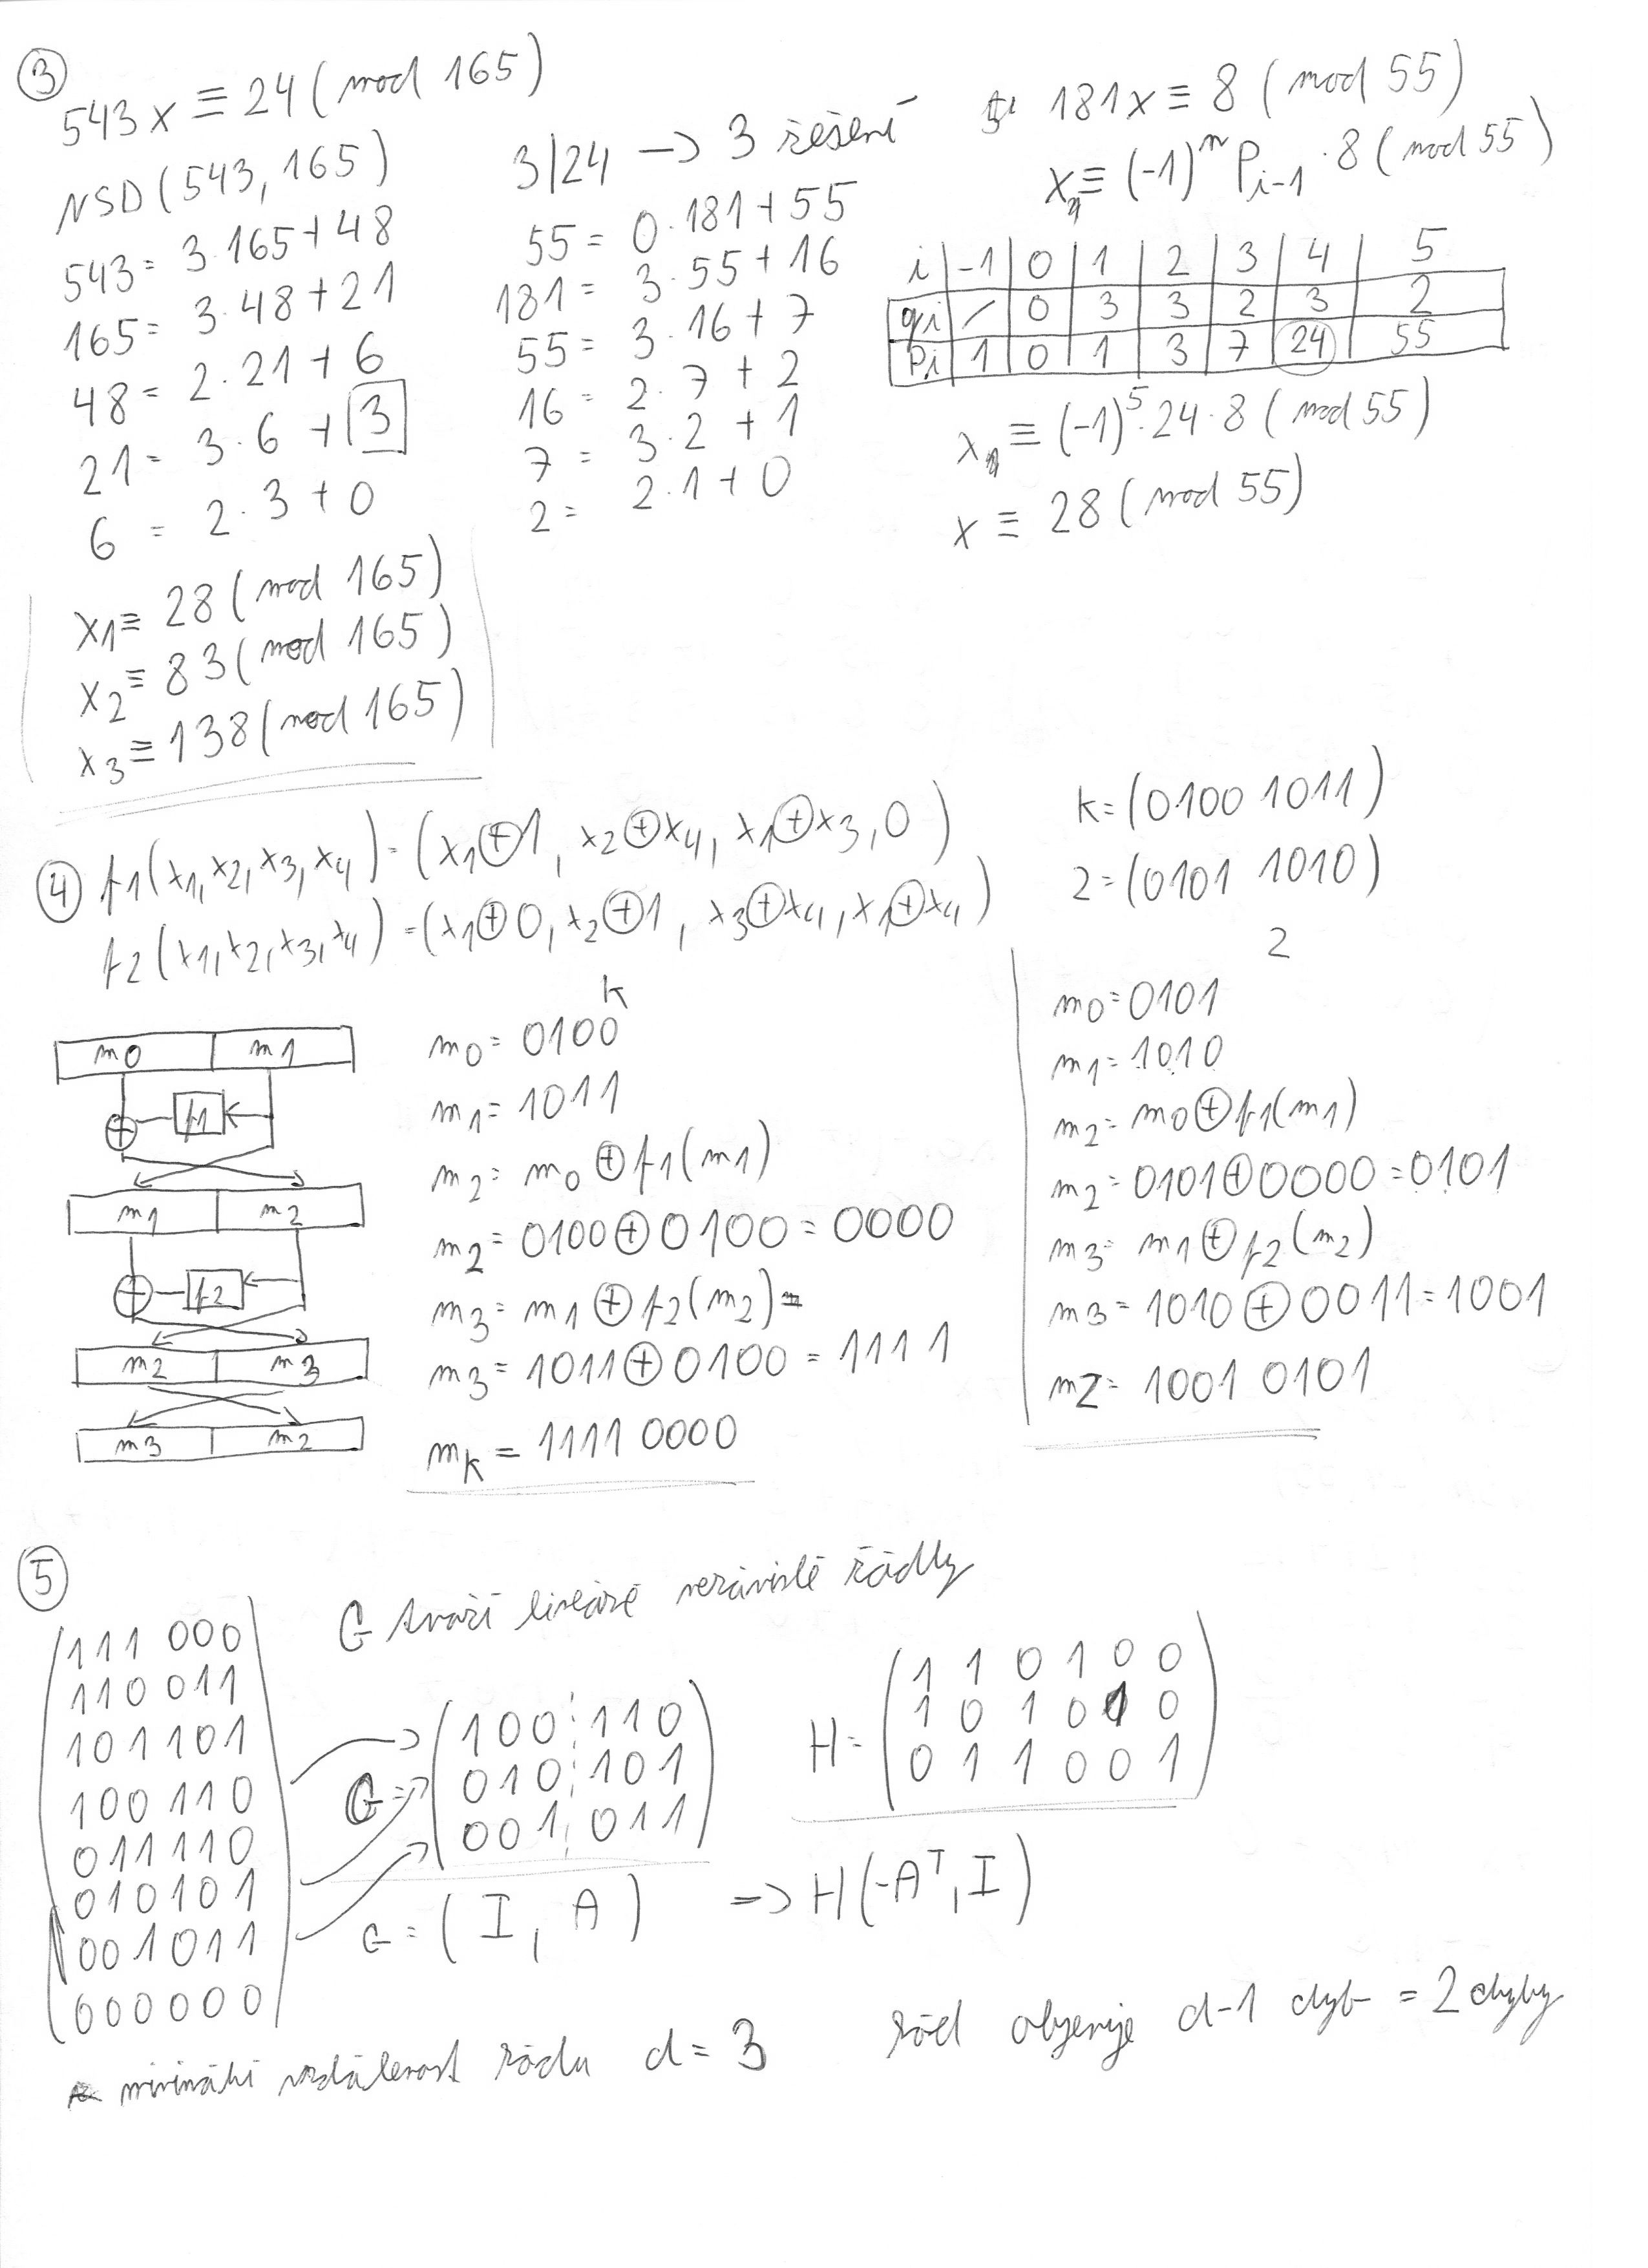 3
543x ≡ 24 (mod 165)
NSD(543, 165)
543 = 3·165+48
165 = 3·48+21
48 = 2·21+6
21 = 3·6+3
6 = 2·3+0
x1 ≡ 28 (mod 165)
x2 ≡ 83 (mod 165)
x3 ≡ 138 (mod 165)
3|24 -> 3 řešení
55 = 0·181+55
181 = 3·55+16
55 = 3·16+7
16 = 2·7+2
7 = 3·2+1
2 = 2·1+0
181x ≡ 8 (mod 55)
x ≡ (-1)^n P_{i-1}·8 (mod 55)
i -1 0 1 2 3 4 5
qi / 0 3 3 2 3 2
Pi 1 0 1 3 7 24 55
x ≡ (-1)^5·24·8 (mod 55)
x ≡ 28 (mod 55)
4 f1(x1,x2,x3,x4) = (x1⊕1, x2⊕x4, x1⊕x3, 0)
f2(x1,x2,x3,x4) = (x1⊕0, x2⊕1, x3⊕x4, x1⊕x4)
k=(0100 1011)
2=(0101 1010)
m0 m1
⊕ f1
m1 m2
⊕ f2
m2 m3
m3 m2
k
m0 = 0100
m1 = 1011
m2 = m0 ⊕ f1(m1)
m2 = 0100 ⊕ 0100 = 0000
m3 = m1 ⊕ f2(m2) =
m3 = 1011 ⊕ 0100 = 1111
mk = 1111 0000
2
m0 = 0101
m1 = 1010
m2 = m0 ⊕ f1(m1)
m2 = 0101 ⊕ 0000 = 0101
m3 = m1 ⊕ f2(m2)
m3 = 1010 ⊕ 0011 = 1001
mZ = 1001 0101
5
111 000
110 011
101 101
100 110
011 110
010 101
001 011
000 000
G tvoří lineárě nezávislé řádky
G =
100 110
010 101
001 011
H =
1 1 0 1 0 0
1 0 1 0 1 0
0 1 1 0 0 1
G = (I, A) => H(-A^T, I)
minimální vzdálenost kódu d = 3
kód objevuje d-1 chyb = 2 chyby